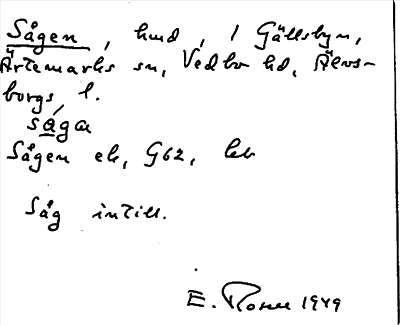 Sågen, hmd, i Gällsbyn,
Ärtemarks sn, Vedbo hd, Älvs-
borgs l.
sága
Sågen ek, G62, lht
Såg intill.
E. Rosell 1949